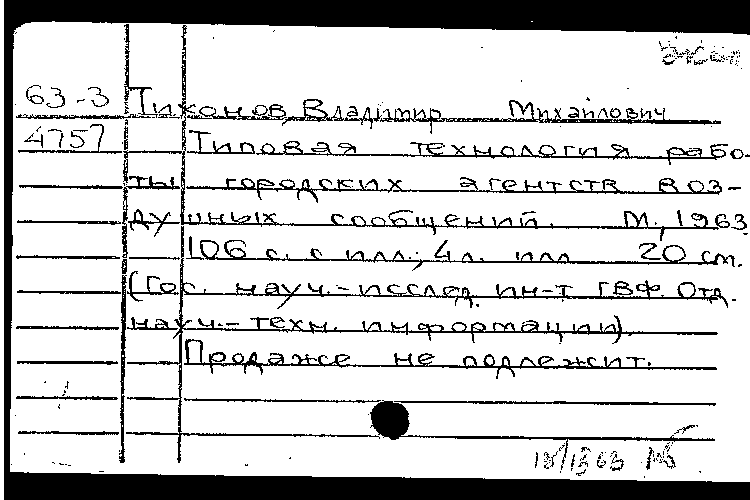 63-3 Тихонов, Владимир Михайлович
4757 Типовая технология рабо-
ты городских агентств воз-
душных сообщений. М., 1963
106 с. с илл.; 4 л. илл 20 см.
(Гос. науч.-исслед. ин-т ГВФ. Отд.
науч.-техн. информации).
Продаже не подлежит.